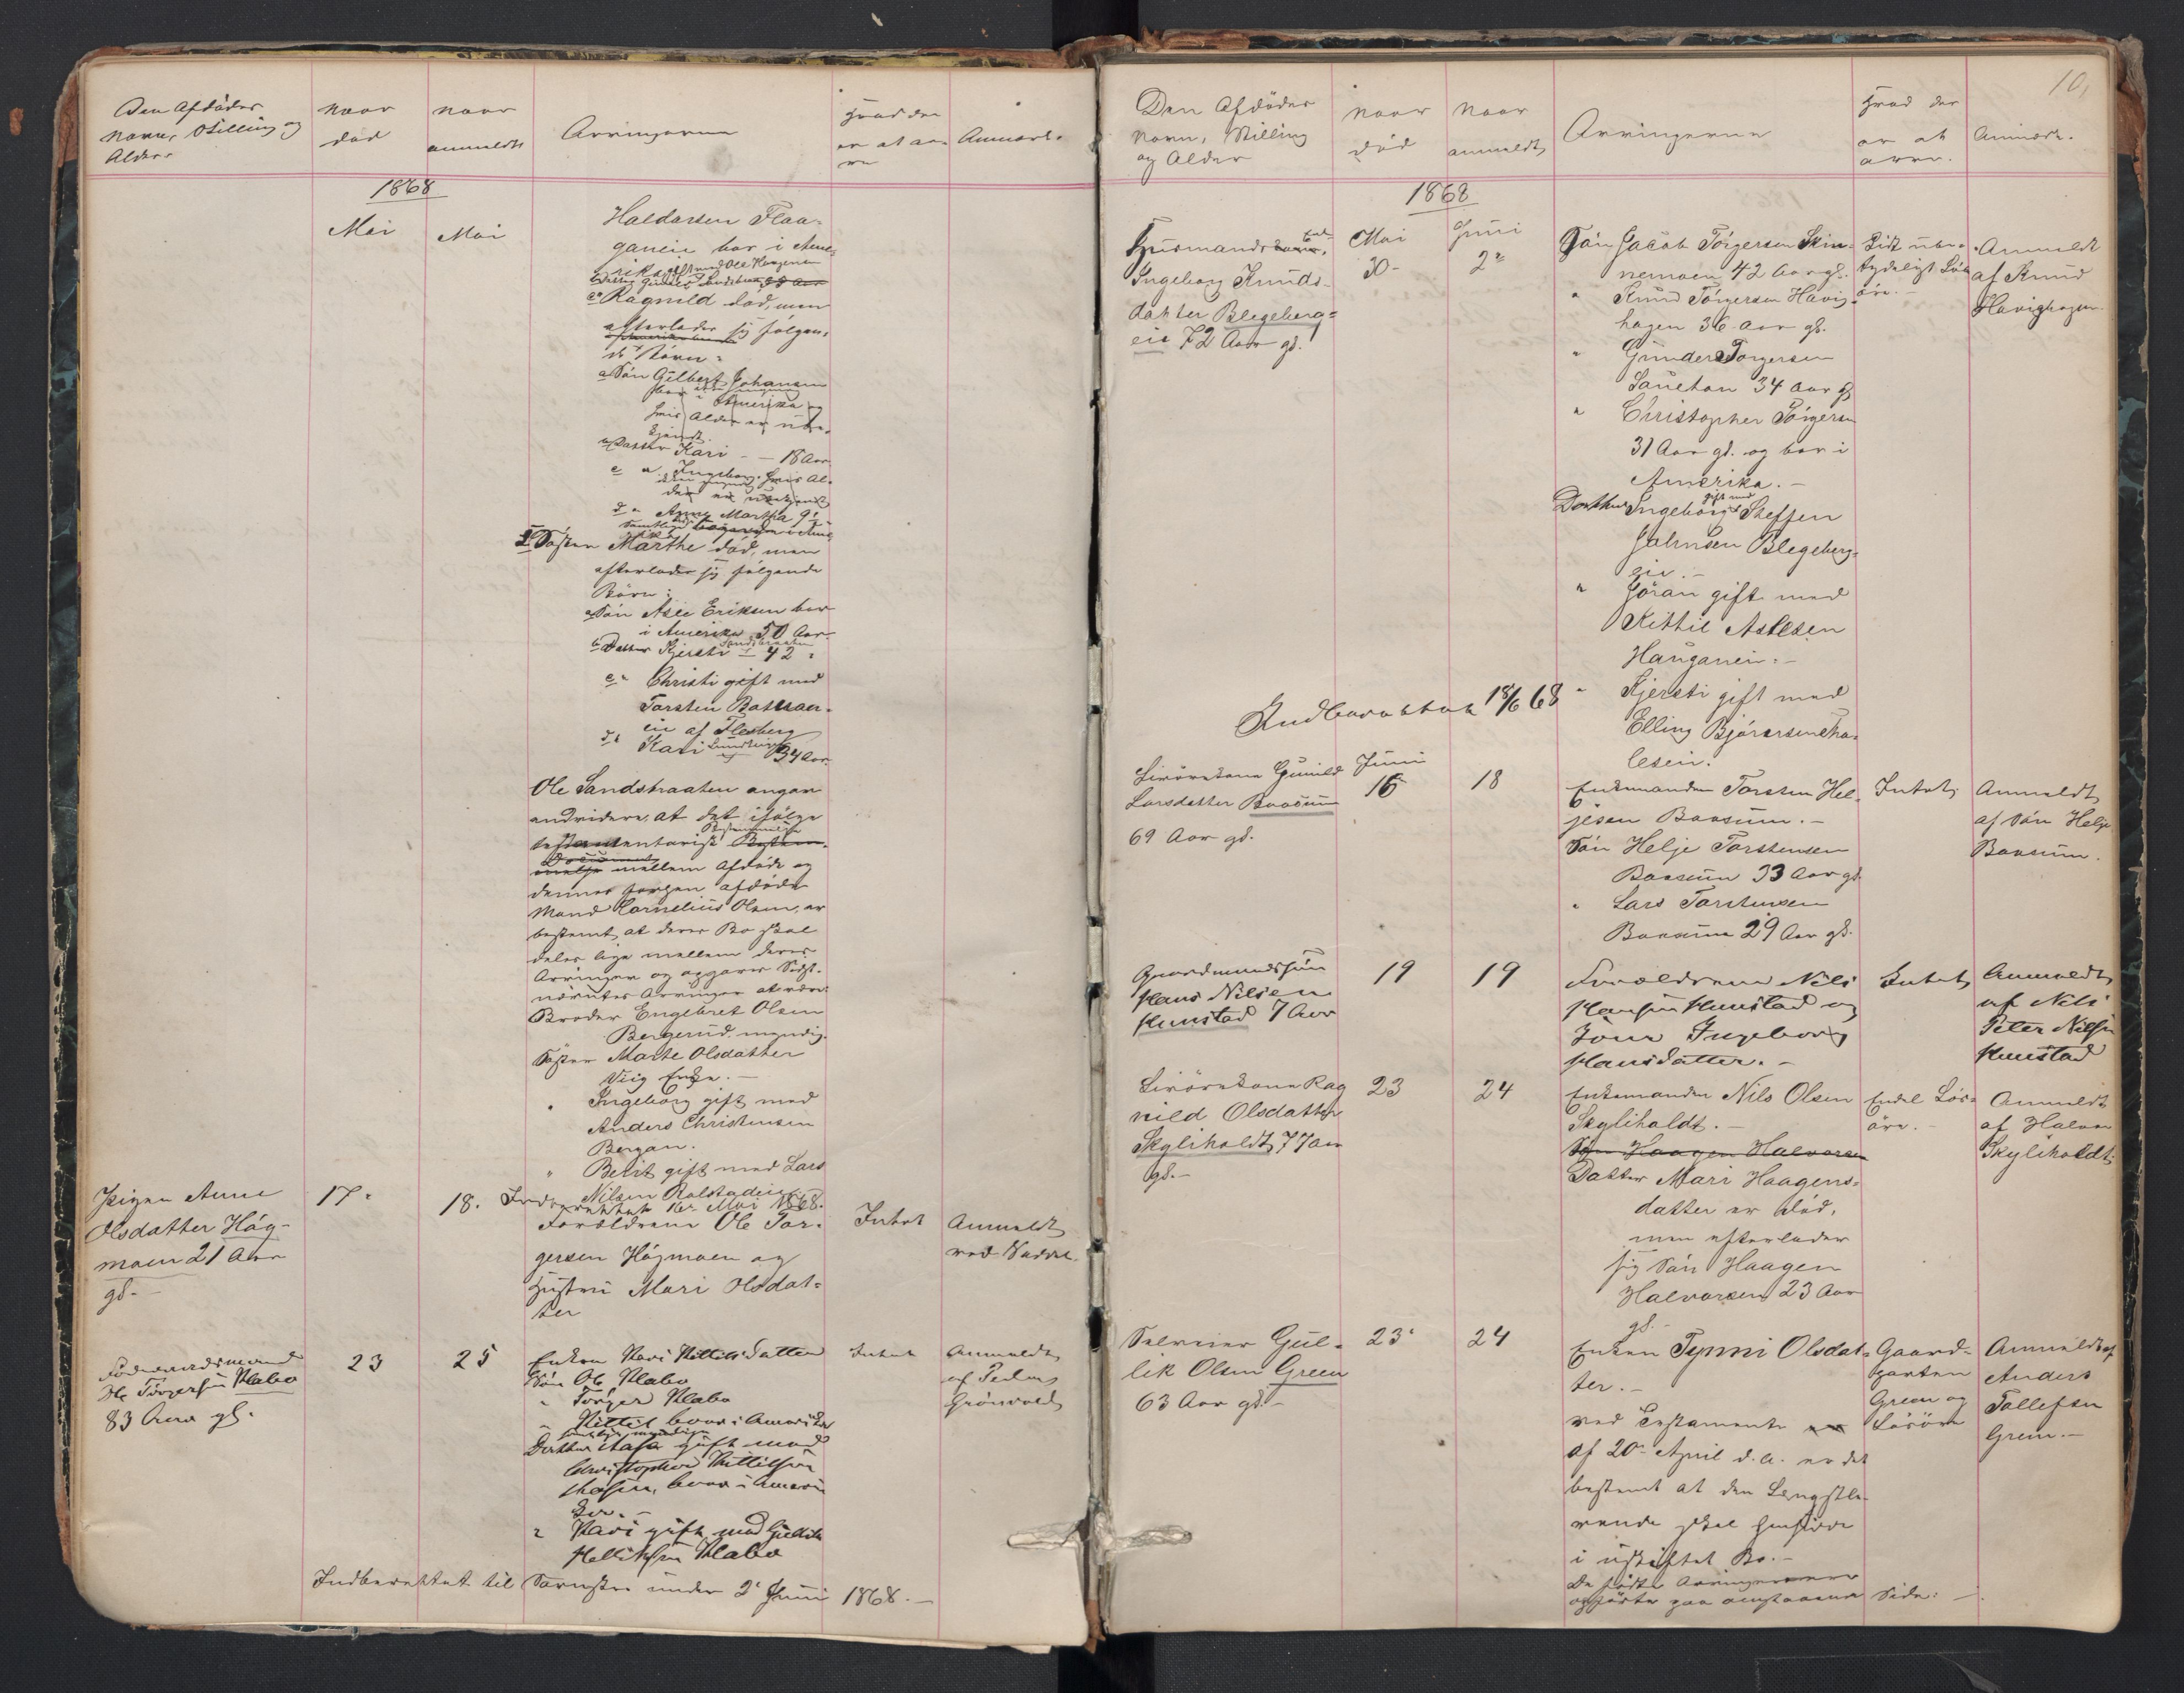 Den Afdødes
Navn, Stilling og
Alder.
Naar
død
Naar
anmeldt
Arvingerne
Hvad der
er at ar-
ve
Anmærk.
1868
Mai
Mai
Haldorsen Flaa-
ganeie bor i Ame-
rika gift med Ole
c Ragnild død, men
efterlader sig følgen-
de Børn:
a Søn Gilbert Johansen
bor i Amerika og
hvis Alder er ube-
kjendt.
b Datter Kari - - 18 Aar
c " Ingeborg, hvis Al-
der er ubekjendt
d " Anne Martha 9½
Søster Marthe død, men
efterlader sig følgende
Børn:
a Søn Asle Eriksen bor
i Amerika 50 Aar
b Datter Kjersti Sandsbraaten 42 "
c " Christi gift med
Torsten
eie af Flesberg
d " Kari 34 Aar.
Ole Sandsbraaten angav
endvidere, at det ifølge
testamentarisk Bestemmelse
mellem Afdøde og
dennes forhen afdøde
Mand Cornelius Olsen, er
bestemt, at deres Bo skal
deles lige mellem deres
Arvinger og opgaves Sidst-
nævntes Arvinger at være:
Broder Engebret Olsen
Bergerud myndig.
Søster Marte Olsdatter
Viig Enke. -
" Ingeborg gift med
Anders Christensen
Bergan.
" Berit gift med Lars
Nilsen Rolstadeie
Indberettet 16de Mai 1868.
Pigen Anne
Olsdatter Høg-
moen 21 Aar
gl. -
17.
18.
Forældrene Ole Tor-
gersen Høgmoen og
Hustru Mari Olsdat-
ter
Intet
Anmeldt
ved
Føderaadsmand
Ole Törgersen Klabo
83 Aar gl.
23
25
Enken Kari Kittilsdatter
Søn Ole Klabo
" Törger Klabo
" Kittil boer i Amerika
samtlige myndige
Datter Aase gift med
Christopher Kittilsen
boer i Ameri-
ka. -
" Kari gift med Gullik
Klabo
Intet
Anmeldt
af Peder
Grönvold
Indberettet til Sorenskr. under 2 Juni 1868. -
10,
Den Afdødes
Navn, Stilling
og Alder
Naar
død
Naar
anmeldt
Arvingerne
Hvad der
er at
arve.
Anmærk.
1868
Husmands
Ingeborg Knuds-
datter Blegeberg-
eie 72 Aar gl.
Mai
30 -
Juni
2
Søn Jacob Törgersen Skin-
nemoen 42 Aar gl.
" Knud Törgersen Havig-
hagen 36 Aar gl.
" Gunder Torgersen
Sauetan 34 Aar gl
" Christopher Törgersen
31 Aar gl. og bor i
Amerika. -
Datter Ingeborg gift med Steffen
Johnsen Blegeberg-
eie. -
" Jöran gift med
Kittil Aslesen
Hauganeie. -
" Kjersti gift med
Elling
Lidt ube-
tydeligt Lös-
öre. -
Anmeldt
af Knud
Havighagen
Indberettet 18/6 68
Livörekone Gunild
Larsdatter Baasum
69 Aar gl.
Juni
16
18
Enkemanden Torsten Hel-
jesen Baasum. -
Søn Helje Torstensen
Baasum 33 Aar gl
" Lars Torstensen
Baasum 29 Aar gl.
Intet
Anmeldt
af Søn Helje
Baasum.
Gaardmandssön
Hans Nilsen
Kunstad 7 Aar
19
19
Forældrene Nils
Hansen Kunstad og
Kone Ingeborg
Hansdatter. -
Intet
Anmeldt
af Nils
Peter Nilsen
Kunstad
Livörekone Rag
nild Olsdatter
Skyliholdt 77 Aar
gl. -
23
24
Enkemanden Nils Olsen
Skyliholdt. -
Søn Haagen Halvorsen
Datter Mari Haagens-
datter er död,
men efterlader
sig Søn Haagen
Halvorsen 23 Aar
gl. -
Endel Lös-
öre. -
Anmeldt
af Halvor
Skyliholdt
Selveier Gul-
lik Olsen Green
63 Aar gl. -
23
24
Enken Tynni Olsdat-
ter. -
ved Testamente
af 20de April d. A. er det
bestemt at den Længstle-
vende skal hensidde
i uskiftet Bo. -
De fødte Arvinger
opføres paa omstaaende Side: -
Gaard-
parten
Green og
Lösöre
Anmeldt af
Anders
Tollefsen
Green. -